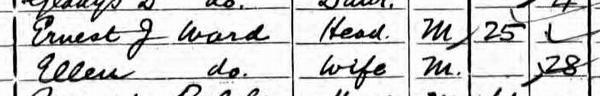 Gladys D do. Daur. 4
Ernest J Ward Head. M 25
Ellen do. Wife M. 28